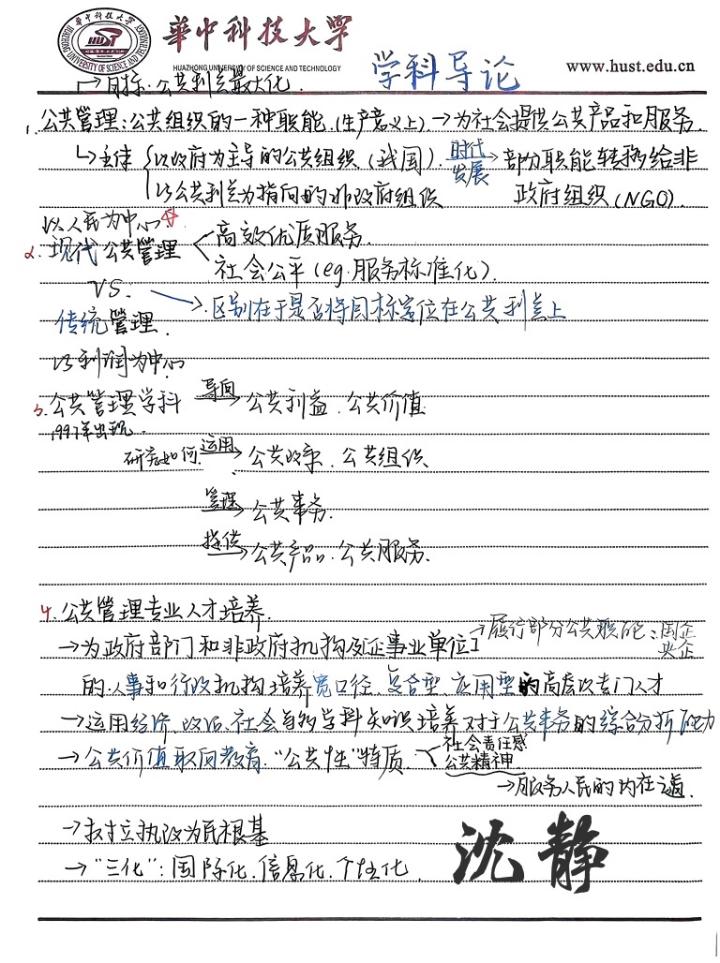 华中科技大学
HUAZHONG UNIVERSITY OF SCIENCE AND TECHNOLOGY
学科导论
www.hust.edu.cn
→目标:公共利益最大化.
1. 公共管理:公共组织的一种职能.(生产意义上).→为社会提供公共产品和服务.
↳主体 以政府为主导的公共组织(我国). 时代发展→部分职能转移给非
以公共利益为指向的非政府组织 政府组织(NGO).
以人民为中心☆
2. 现代公共管理 高效优质服务.
社会公平(eg.服务标准化).
VS.
→区别在于是否将目标定位在公共利益上
传统管理.
以利润为中心
3. 公共管理学科 导向→公共利益.公共价值
1997年出现.
研究如何 运用→公共政策.公共组织
管理→公共事务.
提供→公共产品.公共服务.
4. 公共管理专业人才培养.
→履行部分公共职能:国企 央企
→为政府部门和非政府机构及企事业单位
的人事和行政机构培养宽口径、复合型、应用型的高层次专门人才
→运用经济、政治、社会等多学科知识培养对于公共事务的综合分析能力
→公共价值取向教育."公共性"特质. 社会责任感
公共精神
→服务人民的内在
→树立执政为民根基
→"三化":国际化.信息化.个性化.
沈静